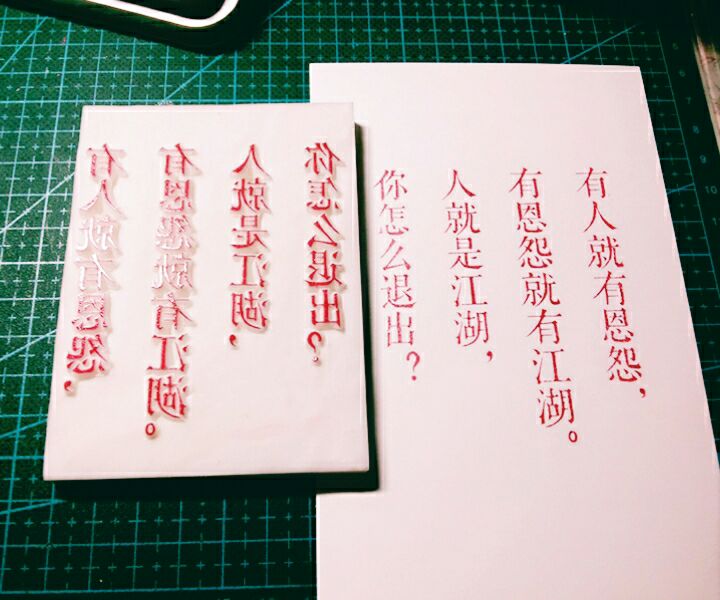 有人就有恩怨，
有恩怨就有江湖。
人就是江湖，
你怎么退出？
有人就有恩怨，
有恩怨就有江湖。
人就是江湖，
你怎么退出？